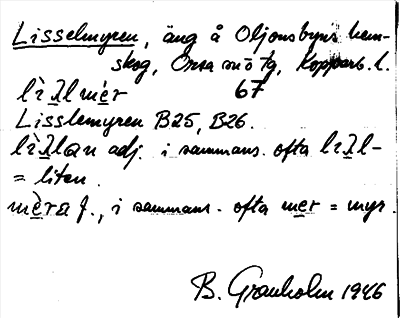 Lisselmyren, äng å Oljonsbyns hem-
skog, Orsa sn o tg, Kopparb. l.
lìsl mèr 67
Lisslemyren B25, B26.
adj. i sammans. ofta
= liten.
mèra f., i sammans. ofta mer = myr.
B. Granholm 1946